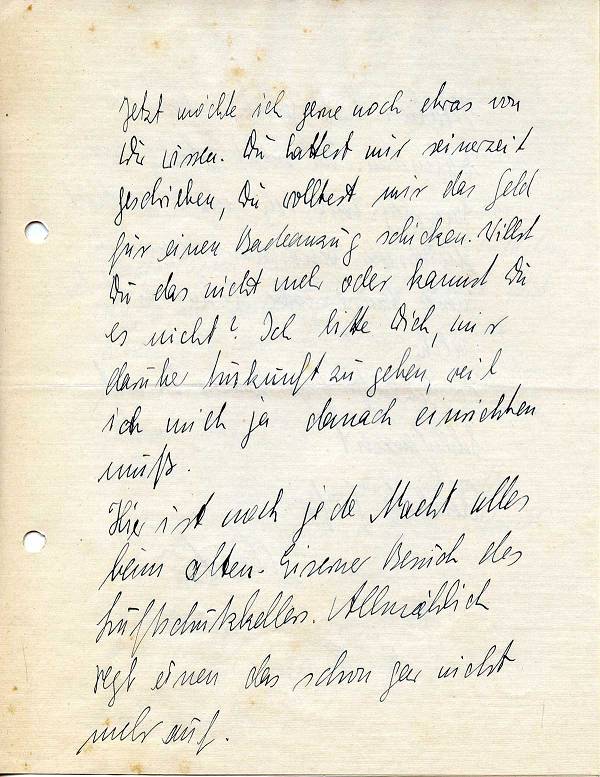 Jetzt möchte ich gerne noch etwas von
Dir wissen. Du hattest mir seinerzeit
geschrieben, Du wolltest mir das Geld
für einen Badeanzug schicken. Willst
Du das nicht mehr oder kannst Du
es nicht? Ich bitte Dich, mir
darüber Auskunft zu geben, weil
ich mich ja danach einrichten
muß.
Hier ist noch jede Nacht alles
beim alten. Eiserner Besuch des
Luftschutzkellers. Allmählich
regt einen das schon gar nicht
mehr auf.